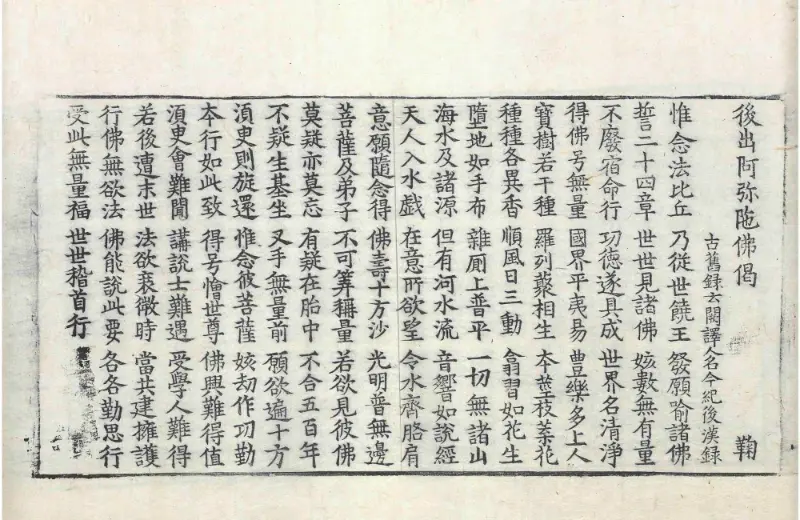 後出阿弥陁佛偈 鞠
古舊録云闕譯人名今紀後漢録
惟念法比丘 乃從世饒王 發願喻諸佛
誓二十四章 世世見諸佛 姟數無有量
不廢宿命行 功德遂具成 世界名清淨
得佛号無量 國界平夷易 豊樂多上人
寶樹若干種 羅列藂相生 夲莖枝葉花
種種各異香 順風日三動 翕習如花生
墮地如手布 雜厠上普平 一切無諸山
海水及諸源 但有河水流 音響如說經
天人入水戲 在意所欲望 令水齊胳肩
意願隨念得 佛壽十方沙 光明普無邊
菩薩及弟子 不可筭稱量 若欲見彼佛
莫疑亦莫忘 有疑在胎中 不合五百年
不疑生基坐 叉手無量前 願欲遍十方
須臾則旋還 惟念彼菩薩 姟劫作功勤
本行如此致 得号懀世尊 佛興難得值
須臾會難聞 講說士難遇 受學人難得
若後遭末世 法欲衰微時 當共建擁護
行佛無欲法 佛能說此要 各各勤思行
受此無量福 世世稽首行